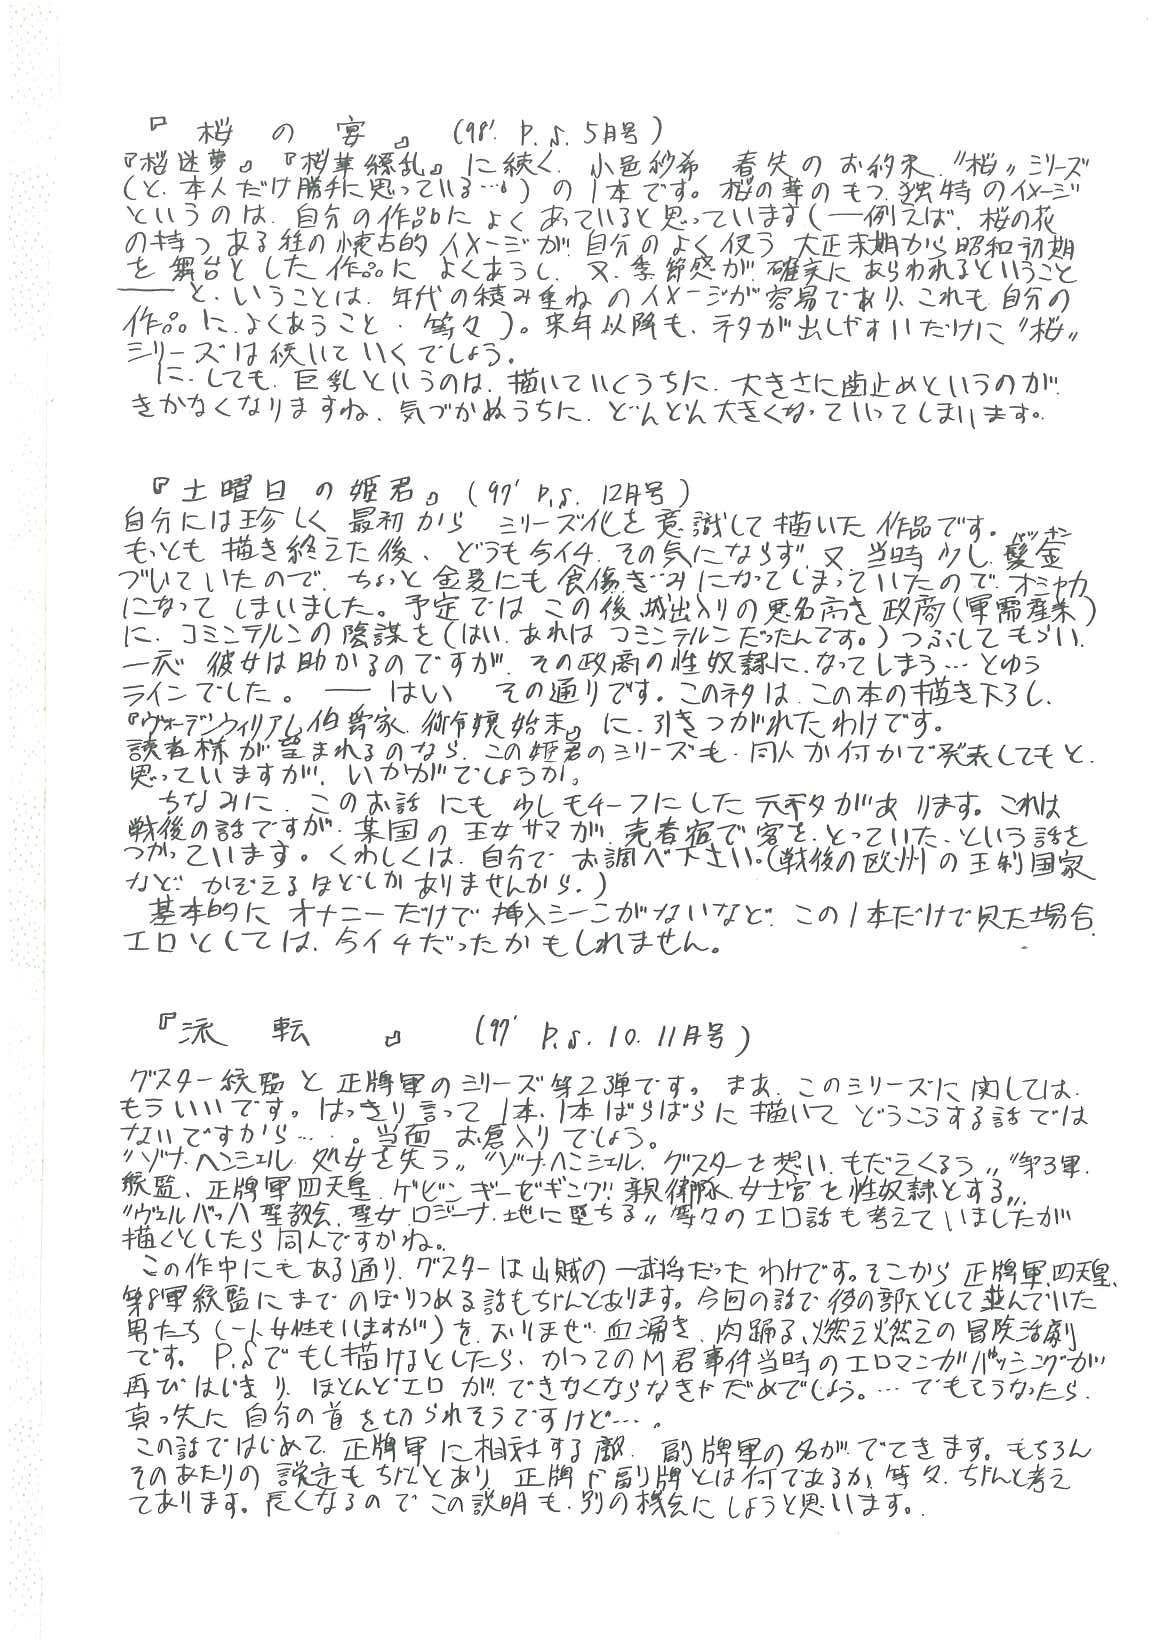 『桜の宴』 (98'. P.S. 5月号)
『桜迷夢』『桜華繚乱』に続く、小邑紗希 春先のお約束、〝桜〟シリーズ
(と、本人だけ勝手に思っている…。)の1本です。桜の華のもつ、独特のイメージ
というのは、自分の作品に よくあっていると思っています(──例えば、桜の花
の持つ ある種の懐古的 イメージが、自分のよく使う 大正末期から昭和初期
を 舞台とした作品に よくあうし、又、季節感が 確実にあらわれるということ
── と、いうことは、年代の積み重ねのイメージが容易であり、これも 自分の
作品に、よくあうこと、等々)。来年以降も、ネタが出しやすいだけに〝桜〟
シリーズは続いていくでしょう。
に、しても、巨乳というのは、描いていくうちに、大きさに歯止めというのが、
きかなくなりますね、気づかぬうちに、どんどん大きくなっていってしまいます。
『土曜日の姫君』(97' P.S. 12月号)
自分には珍しく 最初から シリーズ化を意識して描いた 作品です。
もっとも 描き終えた後、どうも今イチ、その気にならず、又、当時 少し 髪金
づいていたので、ちょっと 金髪にも 食傷ぎみになってしまっていたので、オシャカ
になって しまいました。予定では この後、城出入りの悪名高き 政商(軍需産業)
に、コミンテルンの陰謀を(はい、あれは コミンテルンだったんです。)つぶしてもらい、
一応 彼女は助かるのですが、その政商の性奴隷に、なってしまう… とゆう
ラインでした。── はい その通りです。このネタは、この本の描き下ろし、
『ヴォーデンウィリアム伯爵家 御令嬢始末』に、引きつがれたわけです。
読者様が望まれるのなら、この姫君のシリーズも、同人か何かで発表してもと、
思っていますが、いかがでしょうか。
ちなみに、このお話 にも 少しモチーフにした 元ネタがあります。これは
戦後の話ですが、某国の王女サマが、売春宿で客を、とっていた、という話を
つかっています。くわしくは、自分で お調べ下さい。(戦後の欧州の王制国家
など、かぞえるほどしか ありませんから。)
基本的に オナニーだけで 挿入シーンがないなど、この1本だけで見た場合、
エロとしては、今イチだったかもしれません。
『流転』 (97' P.S. 10. 11月号)
グスター統監と 正牌軍のシリーズ第2弾です。まあ、このシリーズに関しては、
もういいです。はっきり言って 1本、1本 ばらばらに 描いて どうこうする話では
ないですから…。当面 お倉入りでしょう。
〝ゾナ・ヘンシェル 処女を失う〟〝ゾナ・ヘンシェル、グスターを想い、もだえくるう〟〝第3軍
統監、正牌軍四天皇、ゲビン・ギーゼギング!! 親衛隊 女士官を性奴隷とする〟、
〝ヴェルバッハ聖教会、聖女 ロジーナ、地に堕ちる〟等々のエロ話も考えていましたが
描くとしたら同人ですかね。
この作中にもある通り、グスターは山賊の一武将だったわけです。そこから 正牌軍、四天皇、
第8軍統監にまでのぼりつめる話もちゃんとあります。今回の話で 後の部下として並んでいた
男たち(一人女性もいますが)を、おりまぜ 血湧き、肉踊る、燃え燃えの冒険活劇
です。P.Sで もし描けるとしたら、かつてのM君事件当時のエロマンガバッシングが
再びはじまり、ほとんどエロができなくならなきゃだめでしょう。… でもそうなったら、
真っ先に 自分の首を切られそうですけど…。
この話ではじめて、正牌軍に相対する敵、副牌軍の名が、でてきます。もちろん
そのあたりの 設定も ちゃんとあり、正牌や副牌とは何であるか、等々、ちゃんと考え
てあります。長くなるので この説明も、別の機会にしようと思います。